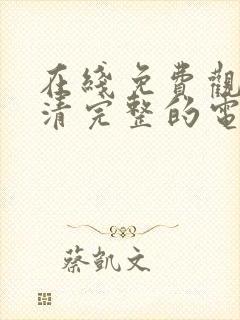 在綫免費觀
清完整的電
蔡凱文